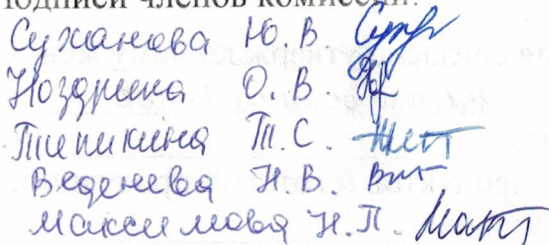 подписи членов комиссии:
Суханова Ю.В.
Ноздрина О.В.
Типикина Т.С.
Веденева Н.В.
Максимова Н.П.